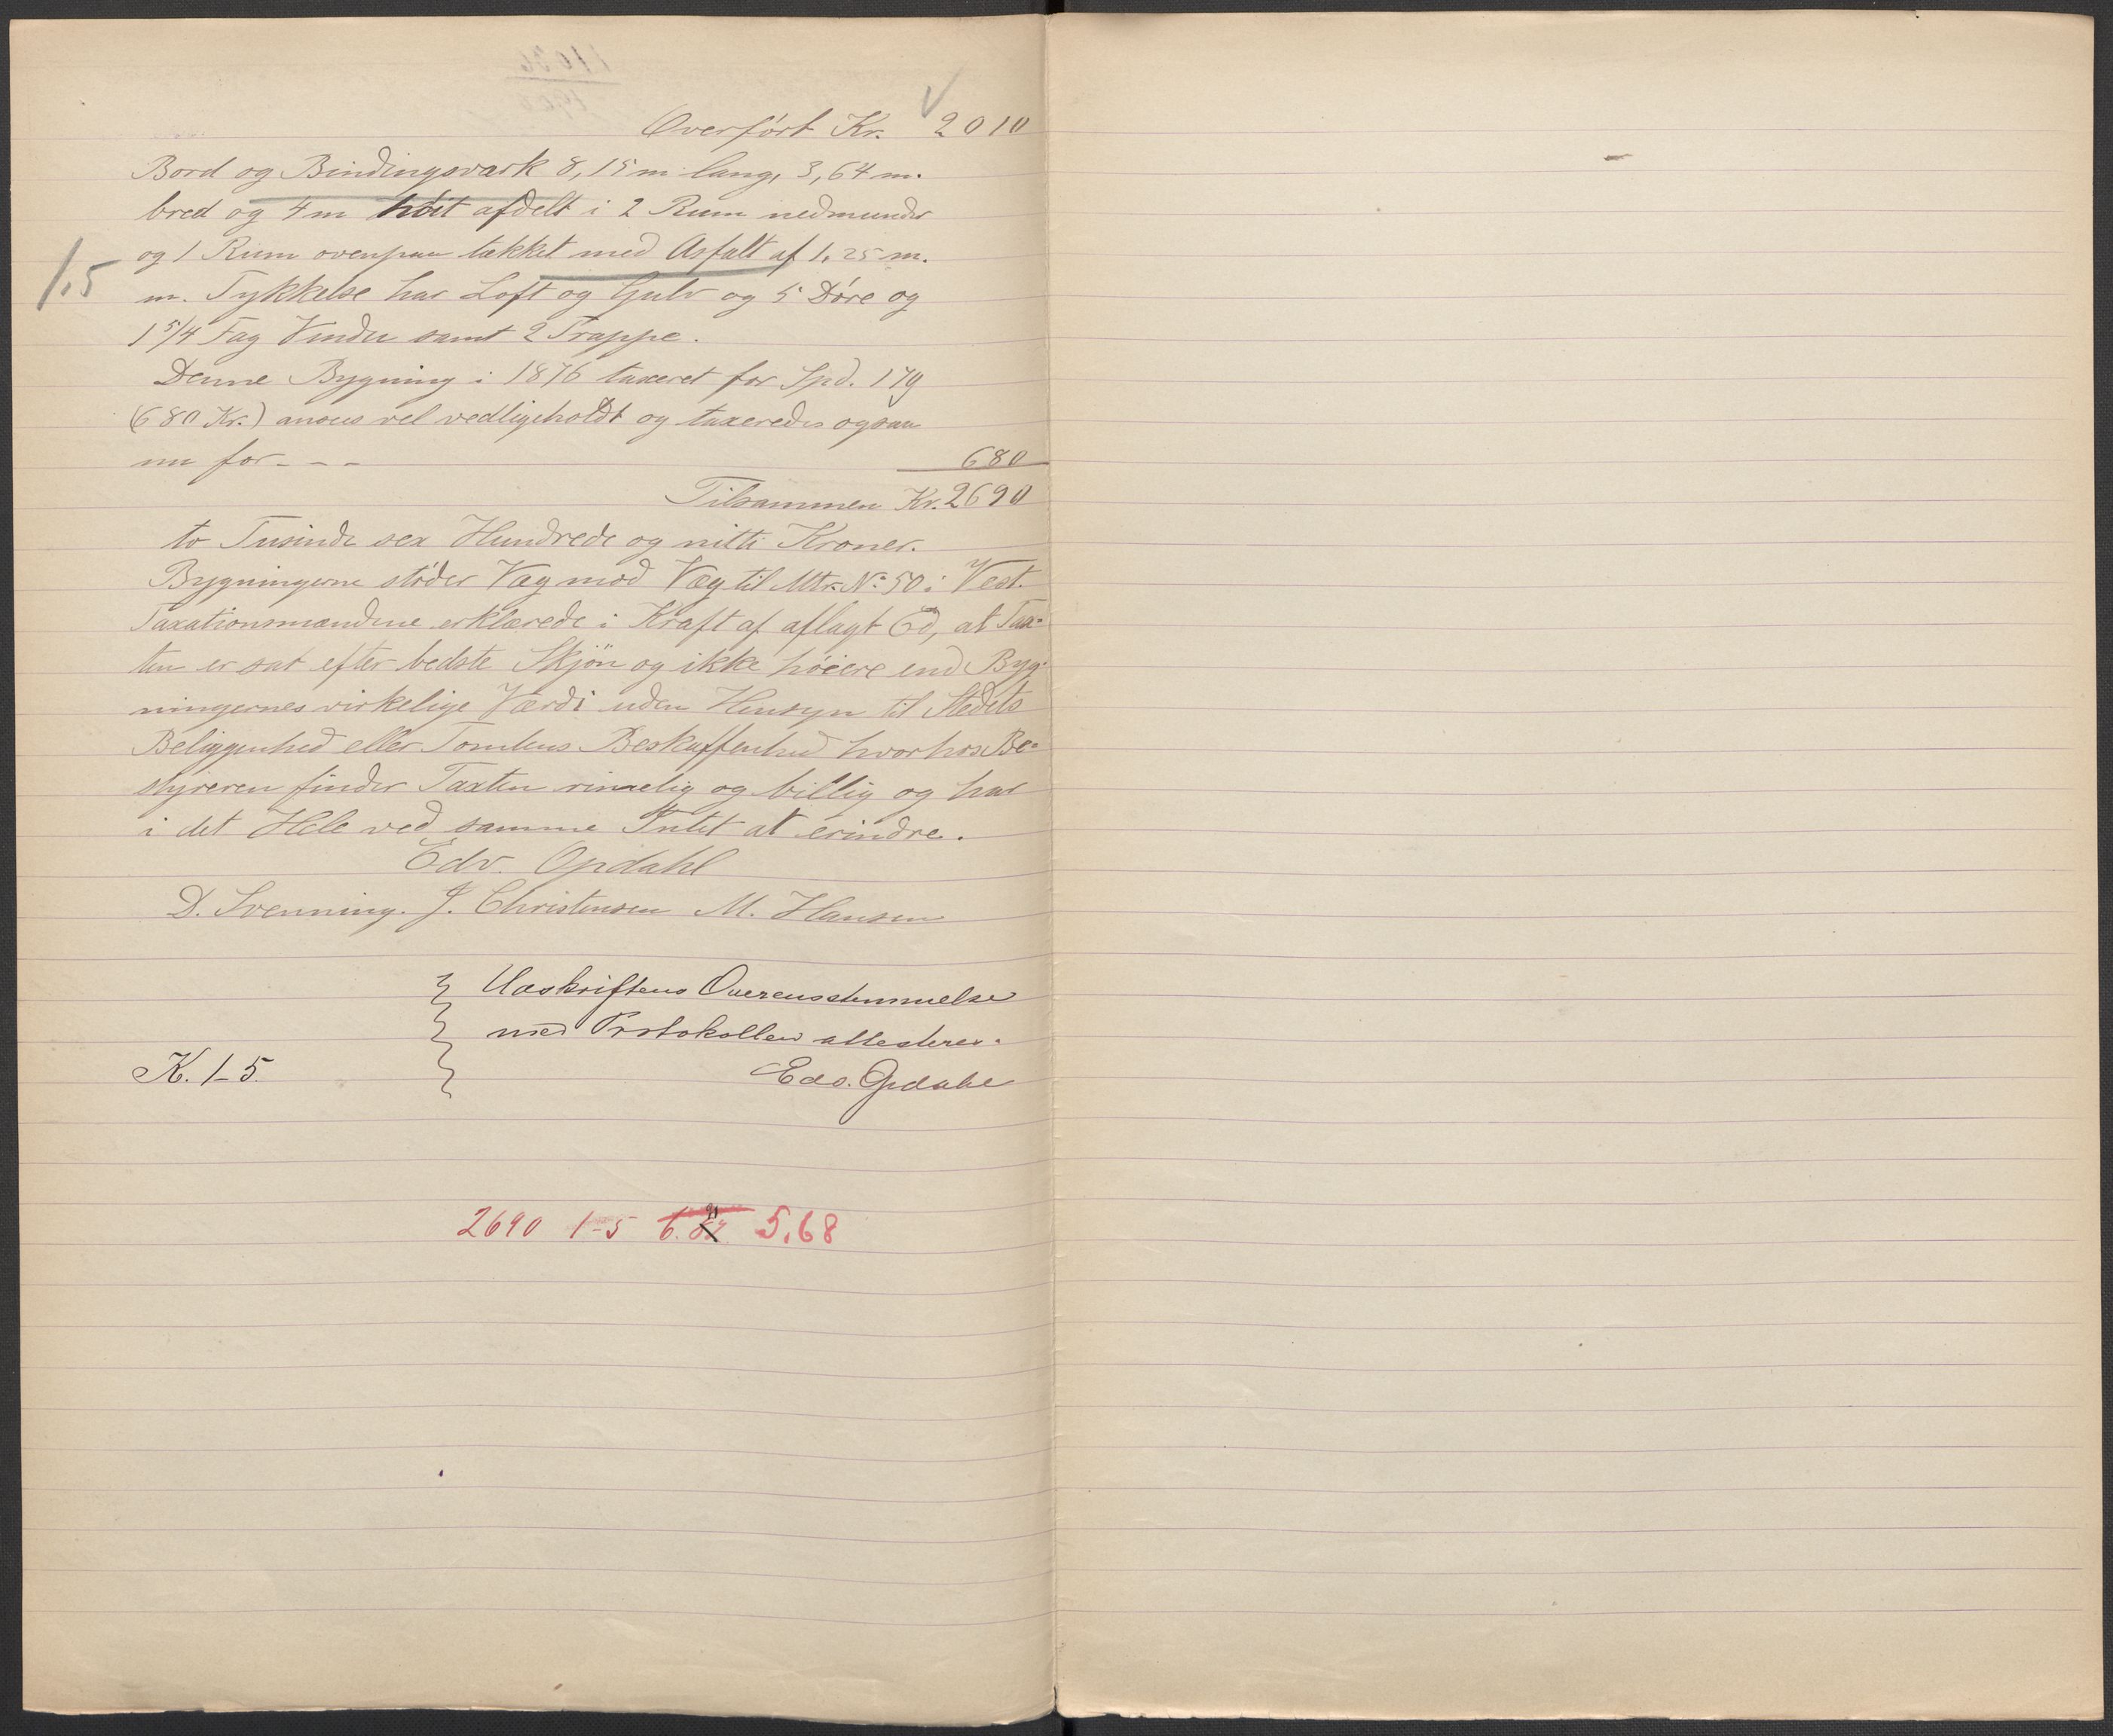 Overført Kr. 2010
Bord og Bindingsværk 8,15 m lang, 3,64 m.
bred og 4 m høit afdelt i 2 Rum nedmunder
og 1 Rum ovenpaa tækket med Asfalt af 1,25 m.
1.5 m. Tykkelse har Loft og Gulv og 5 Døre og
1 5/4 Fag Vinduer samt 2 Trappe.
Denne Bygning i 1876 taxeret for Spd. 170
(680 Kr.) ansees vel vedligeholdt og taxeredes ogsaa
nu for - - - 680
Tilsammen Kr. 2690
to Tusinde sex Hundrede og nitti Kroner.
Bygningerne støder Væg mod Væg til Mtr. No 50 i Vest.
Taxationsmændene erklærede i Kraft af aflagt Ed, at Tax-
ten er sat efter bedste Skjøn og ikke høiere end Byg-
ningernes virkelige Værdi uden Hensyn til Stedets
Beliggenhed eller Tomtens Beskaffenhed hvorhos Be-
styreren finder Taxten rimelig og billig og har
i det Hele ved samme Intet at erindre.
Edv. Opdahl
D. Svenning. J. Christensen M. Hansen
Udskriftens Overensstemmelse
med Protokollen attesteres.
K. 1-5. Edv. Opdahl
2690 1-5 5.68